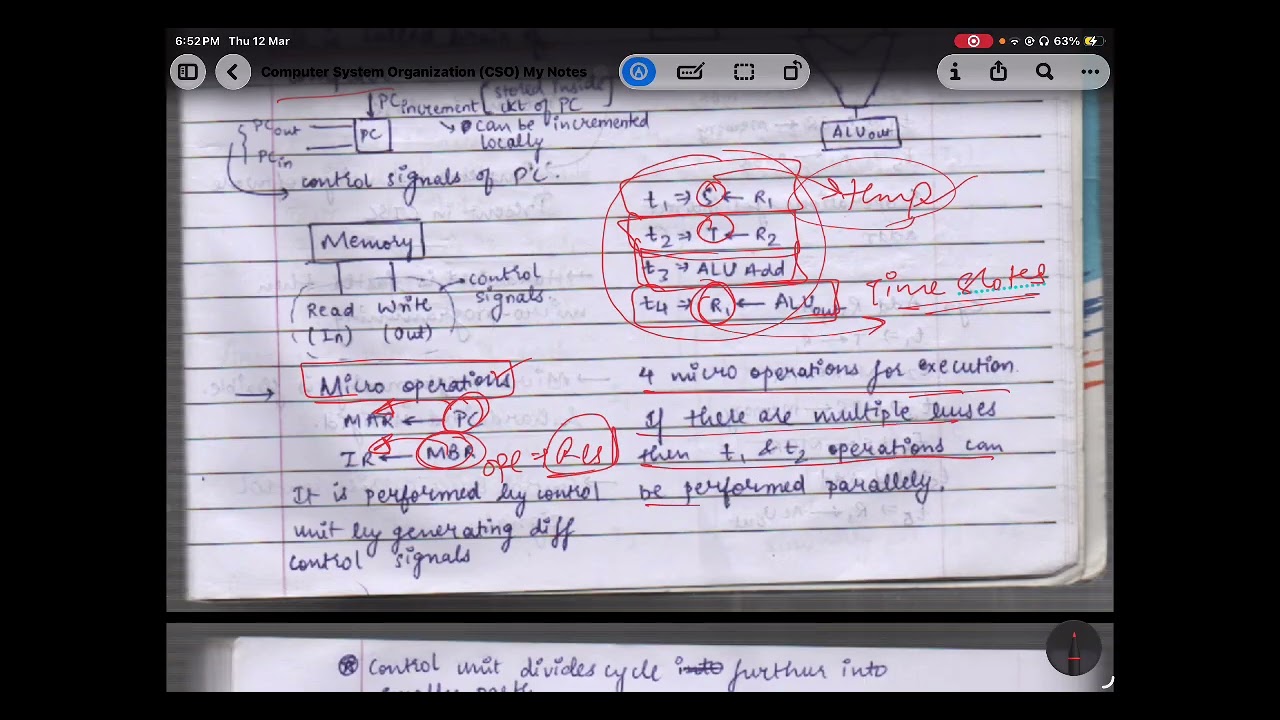 6:52 PM Thu 12 Mar
63%
Computer System Organization (CSO) My Notes
PC increment [stored inside
ckt of PC
PC out
PC
PC in
↳ PC can be incremented
locally
control signals of PC.
Memory
control
signals
Read Write
(In) (Out)
→ Micro operations
MAR ← PC
IR ← MBR
ope → Res
It is performed by control
unit by generating diff
control signals
ALU out
t1 → S ← R1
→ temp
t2 → T ← R2
t3 → ALU Add
t4 → R1 ← ALU out
Time States
4 micro operations for execution.
If there are multiple buses
then t1 & t2 operations can
be performed parallely.
⊛ Control unit divides cycle into furthur into